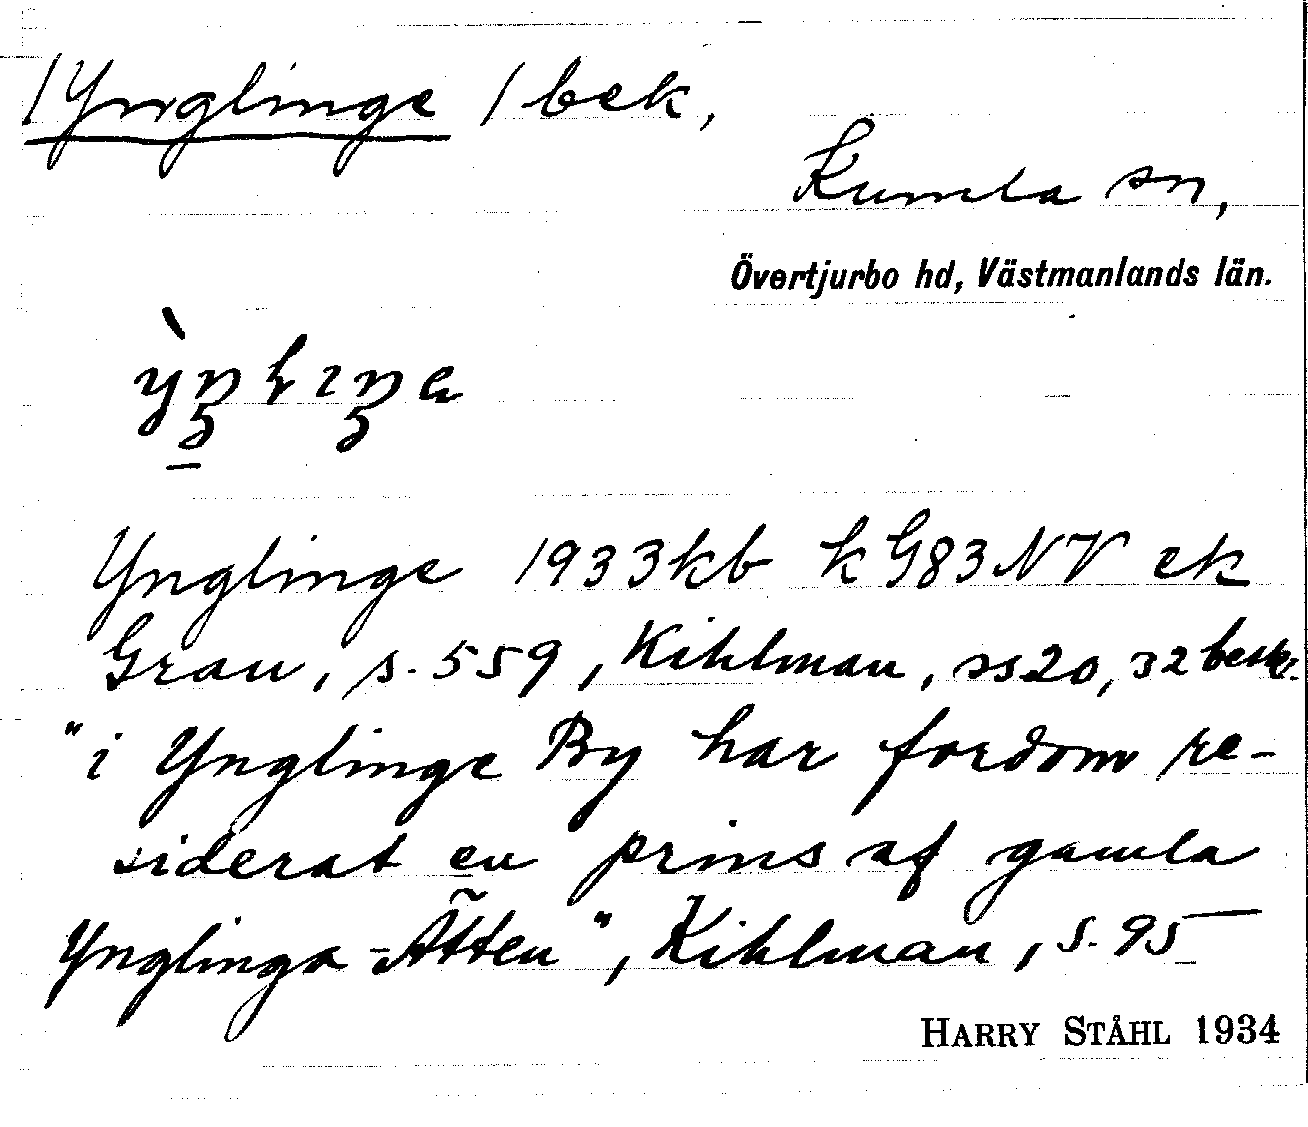 /Ynglinge / bek,
Kumla sn,
Övertjurbo hd, Västmanlands län.
Ynglinge 1933kb k G83NV ek
Grau, s. 559, Kihlman, ss 20, 32 beskr.
"i Ynglinge By har fordom re-
siderat en prins af gamla
Ynglinga-Ätten", Kihlman, s. 95
HARRY STÅHL 1934